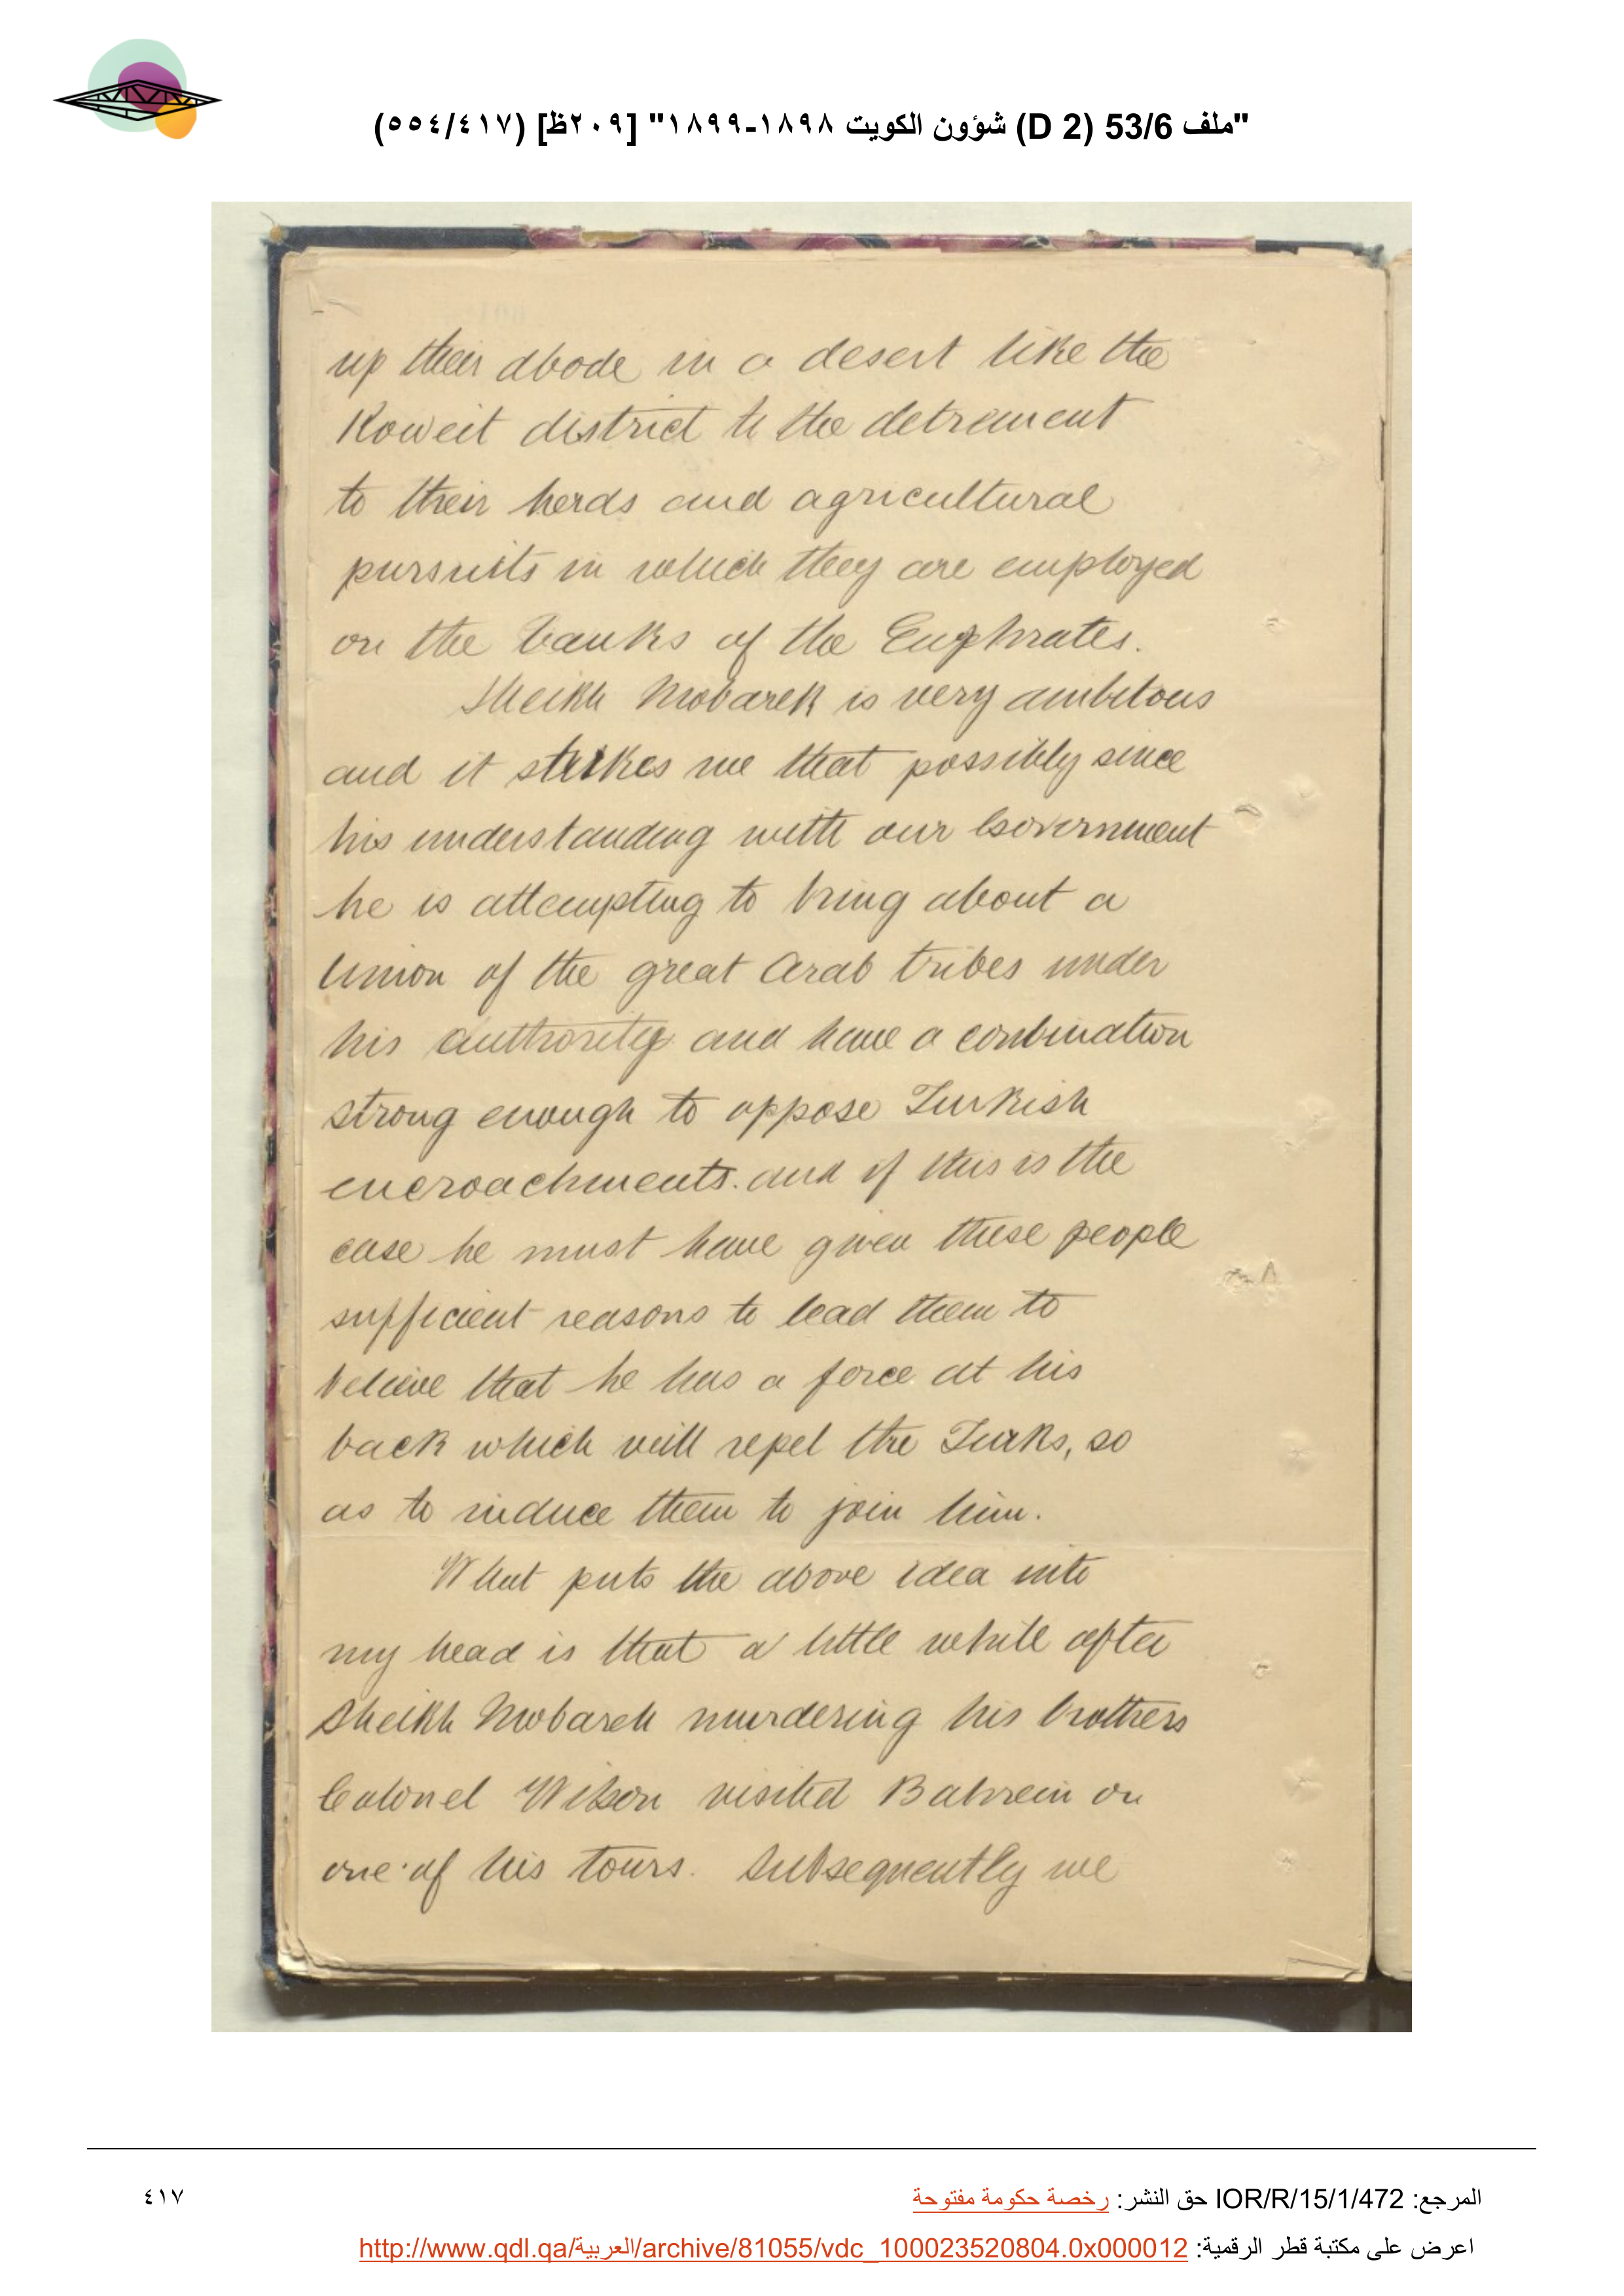 "ملف 53/6 (D 2) شؤون الكويت ١٨٩٨-١٨٩٩" [٢٠٩ظ] (٥٥٤/٤١٧)
up their abode in a desert like the
Koweit district to the detrement
to their herds and agricultural
pursuits in which they are employed
on the banks of the Euphrates.
Sheikh Mobarek is very ambitous
and it strikes me that possibly since
his understanding with our Government
he is attempting to bring about a
Union of the great Arab tribes under
his authority and have a conbination
strong enough to oppose Turkish
encroachments. and if this is the
case he must have given these people
sufficient reasons to lead them to
believe that he has a force at his
back which will repel the Turks, so
as to induce them to join him.
What puts the above idea into
my head is that a little while after
Sheikh Mobarek murdering his brothers
Colonel Wilson visited Bahrein on
one of his tours. Subsequently we
المرجع: IOR/R/15/1/472 حق النشر: رخصة حكومة مفتوحة
٤١٧
اعرض على مكتبة قطر الرقمية: http://www.qdl.qa/العربية/archive/81055/vdc_100023520804.0x000012